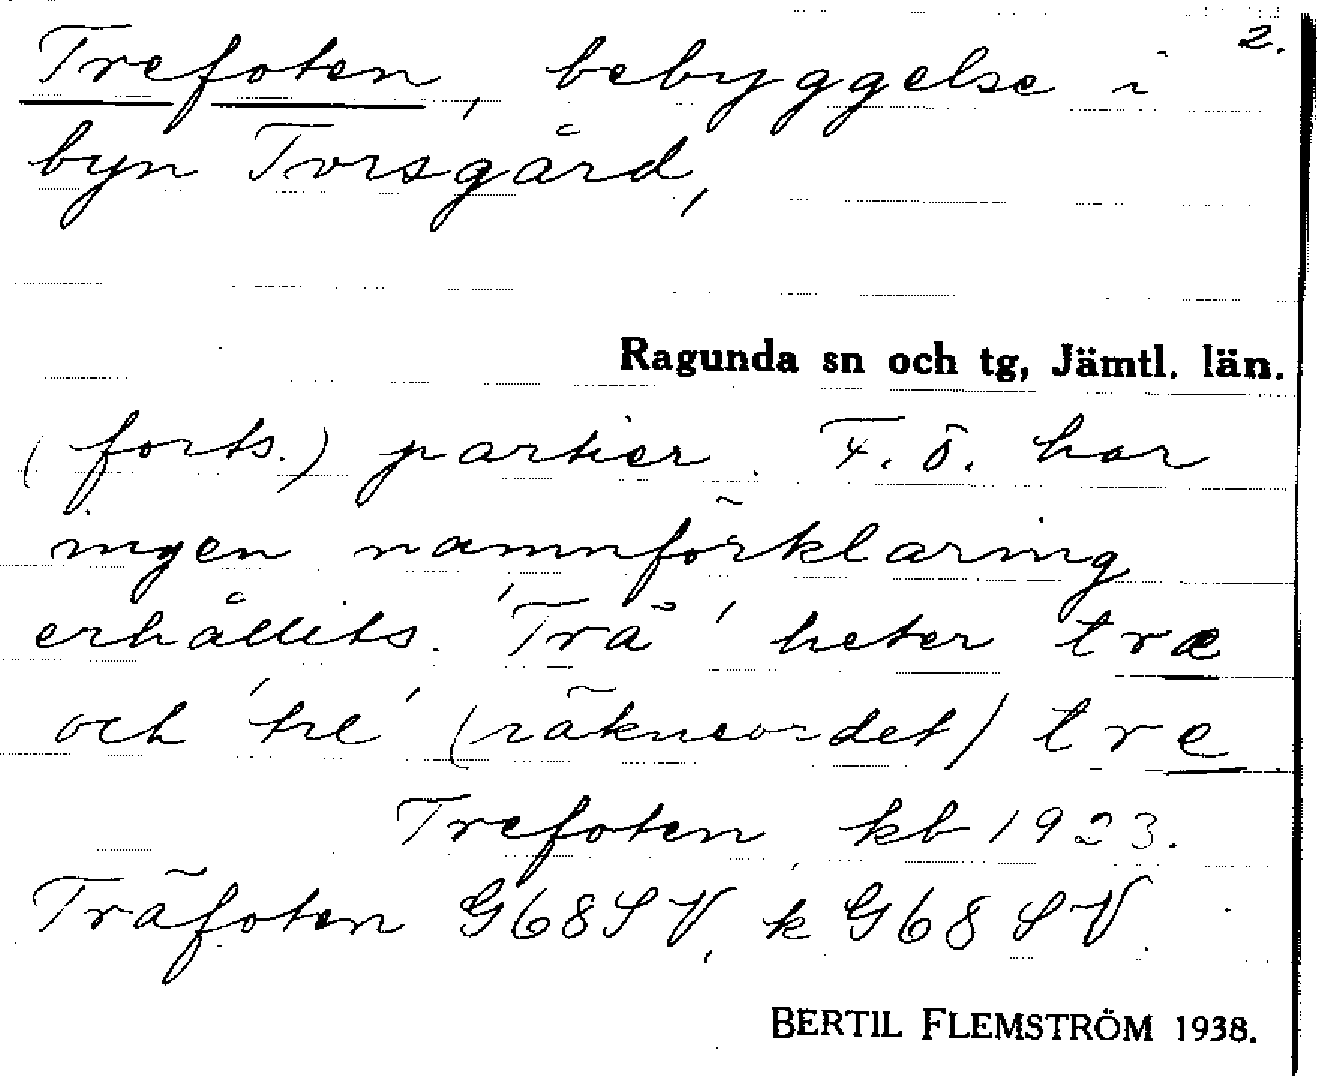 2.
Trefoten, bebyggelse i
byn Torsgård,
Ragunda sn och tg, Jämtl. län.
(forts.) partier. F. ö. har
ingen namnförklaring
erhållits. 'Trä' heter træ
och 'tre' (räkneordet) tre
Trefoten kb 1923.
Träfoten G68SV, k G68SV.
BERTIL FLEMSTRÖM 1938.